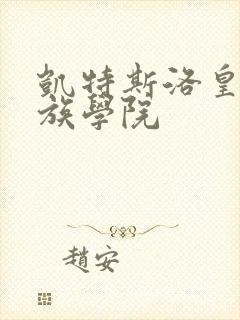 凱特斯洛皇
族學院
趙安